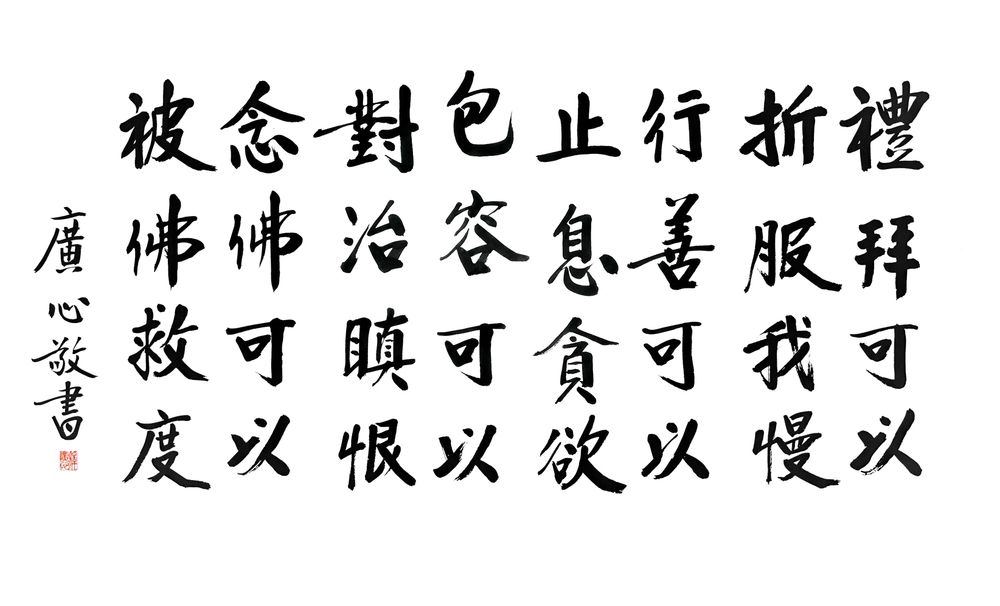 禮拜可以
折服我慢
行善可以
止息貪欲
包容可以
對治瞋恨
念佛可以
被佛救度
廣心敬書